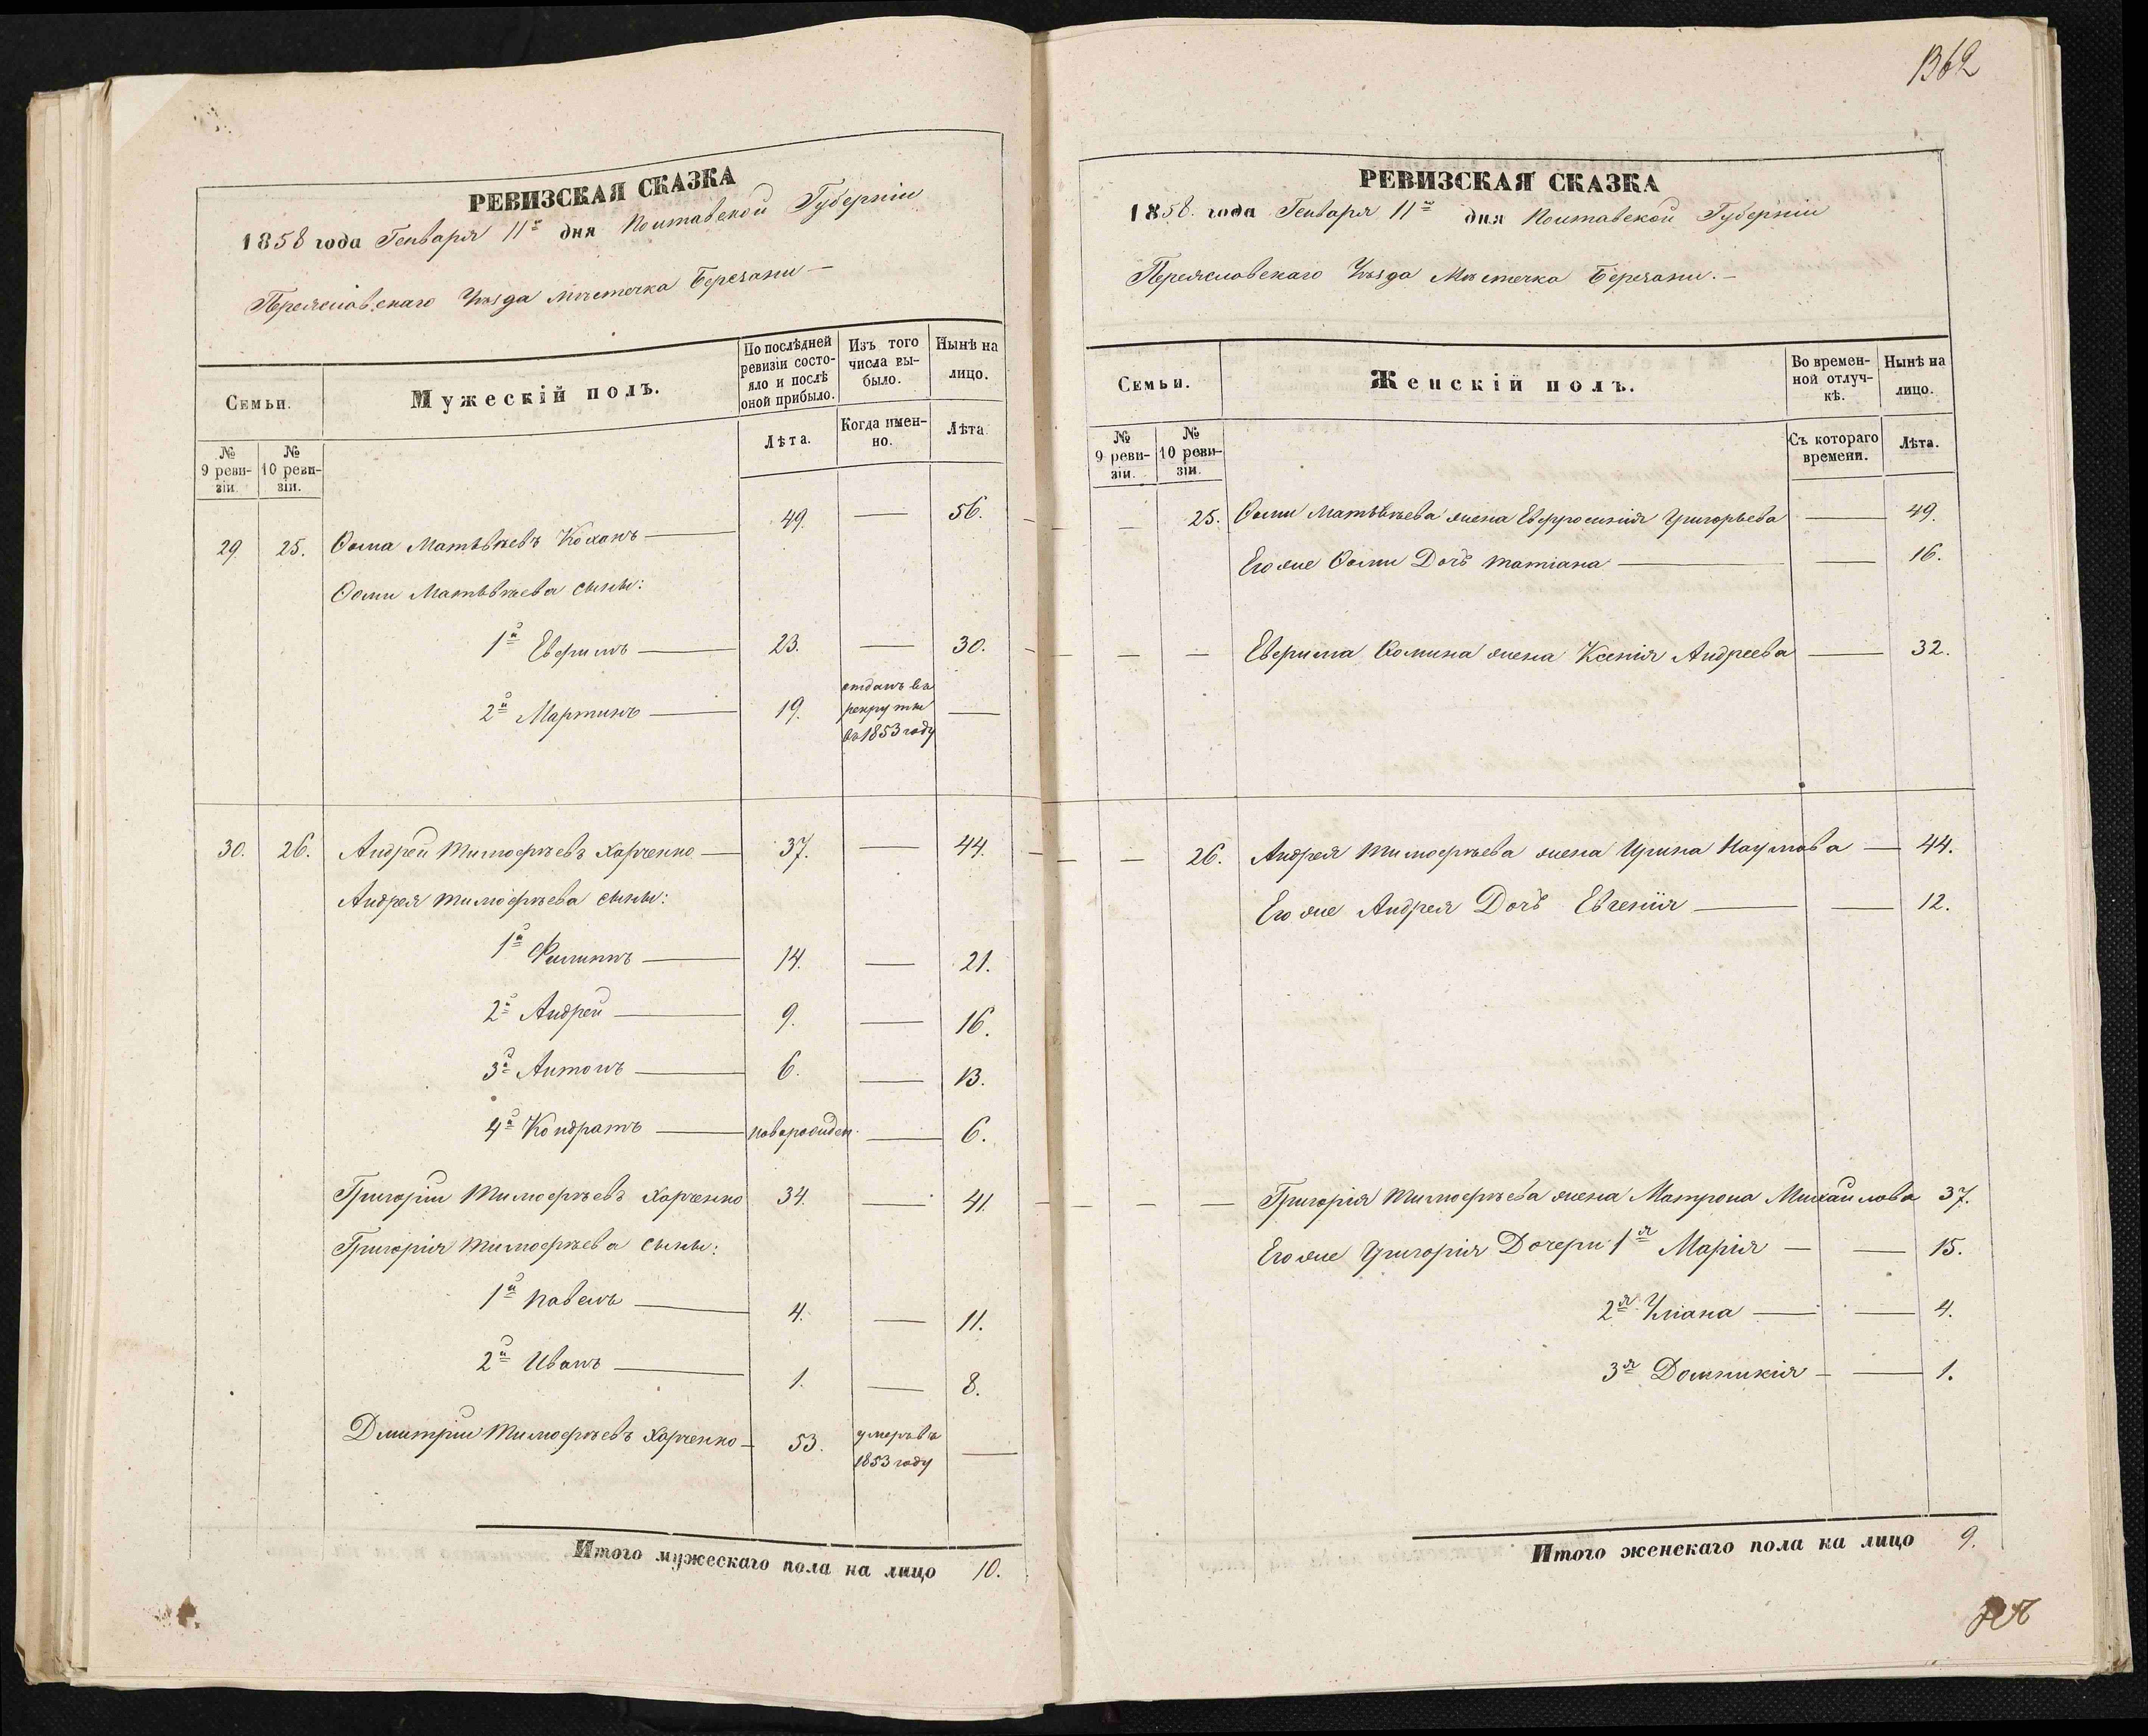 1362
РЕВИЗСКАЯ СКАЗКА
1858 года Генваря 11го дня Полтавской Губерніи
Переяславскаго Уѣзда Мѣстечка Березани —
Семьи.
Мужескій полъ.
По послѣдней ревизіи состояло и послѣ оной прибыло.
Изъ того числа выбыло.
Нынѣ на лицо.
№ 9 ревизіи.
№ 10 ревизіи.
Лѣта.
Когда именно.
Лѣта
29. 25. Ѳома Матвѣевъ Коханъ — 49. — 56.
Ѳомы Матвѣева сыны:
1й Евфимъ — 23. — 30.
2й Мартинъ — 19. отданъ въ рекруты въ 1853 году —
30. 26. Андрей Тимофѣевъ Харченко — 37. — 44.
Андрея Тимофѣева сыны:
1й Филиппъ — 14. — 21.
2й Андрей — 9. — 16.
3й Антонъ — 6. — 13.
4й Кондратъ — новорожден. — 6.
Григорій Тимофѣевъ Харченко 34. — 41.
Григорія Тимофѣева сыны:
1й Павелъ — 4. — 11.
2й Иванъ — 1. — 8.
Дмитрій Тимофѣевъ Харченко — 53. умеръ въ 1853 году —
Итого мужескаго пола на лицо 10.
РЕВИЗСКАЯ СКАЗКА
1858. года Генваря 11го дня Полтавской Губерніи
Переяславскаго Уѣзда Мѣстечка Березани. —
Семьи.
Женскій полъ.
Во временной отлучкѣ.
Нынѣ на лицо.
№ 9 ревизіи.
№ 10 ревизіи.
Съ котораго времени.
Лѣта.
— 25. Ѳомы Матвѣева жена Евфросинія Григорьева — 49.
Его же Ѳомы Дочь Татіана — — 16.
— — Евфима Ѳомина жена Ксенія Андреева — 32.
— 26. Андрея Тимофѣева жена Ирина Наумова — 44.
Его же Андрея Дочь Евгенія — — 12.
— — Григорія Тимофѣева жена Матрона Михайлова 37.
Его же Григорія Дочери 1я Марія — — 15.
2я Уліана — — 4.
3я Домникія — — 1.
Итого женскаго пола на лицо 9.